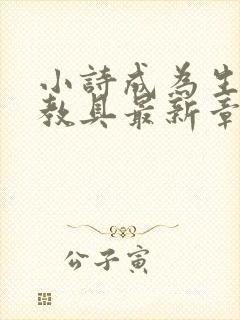 小詩成為生
教具最新章
公子寅